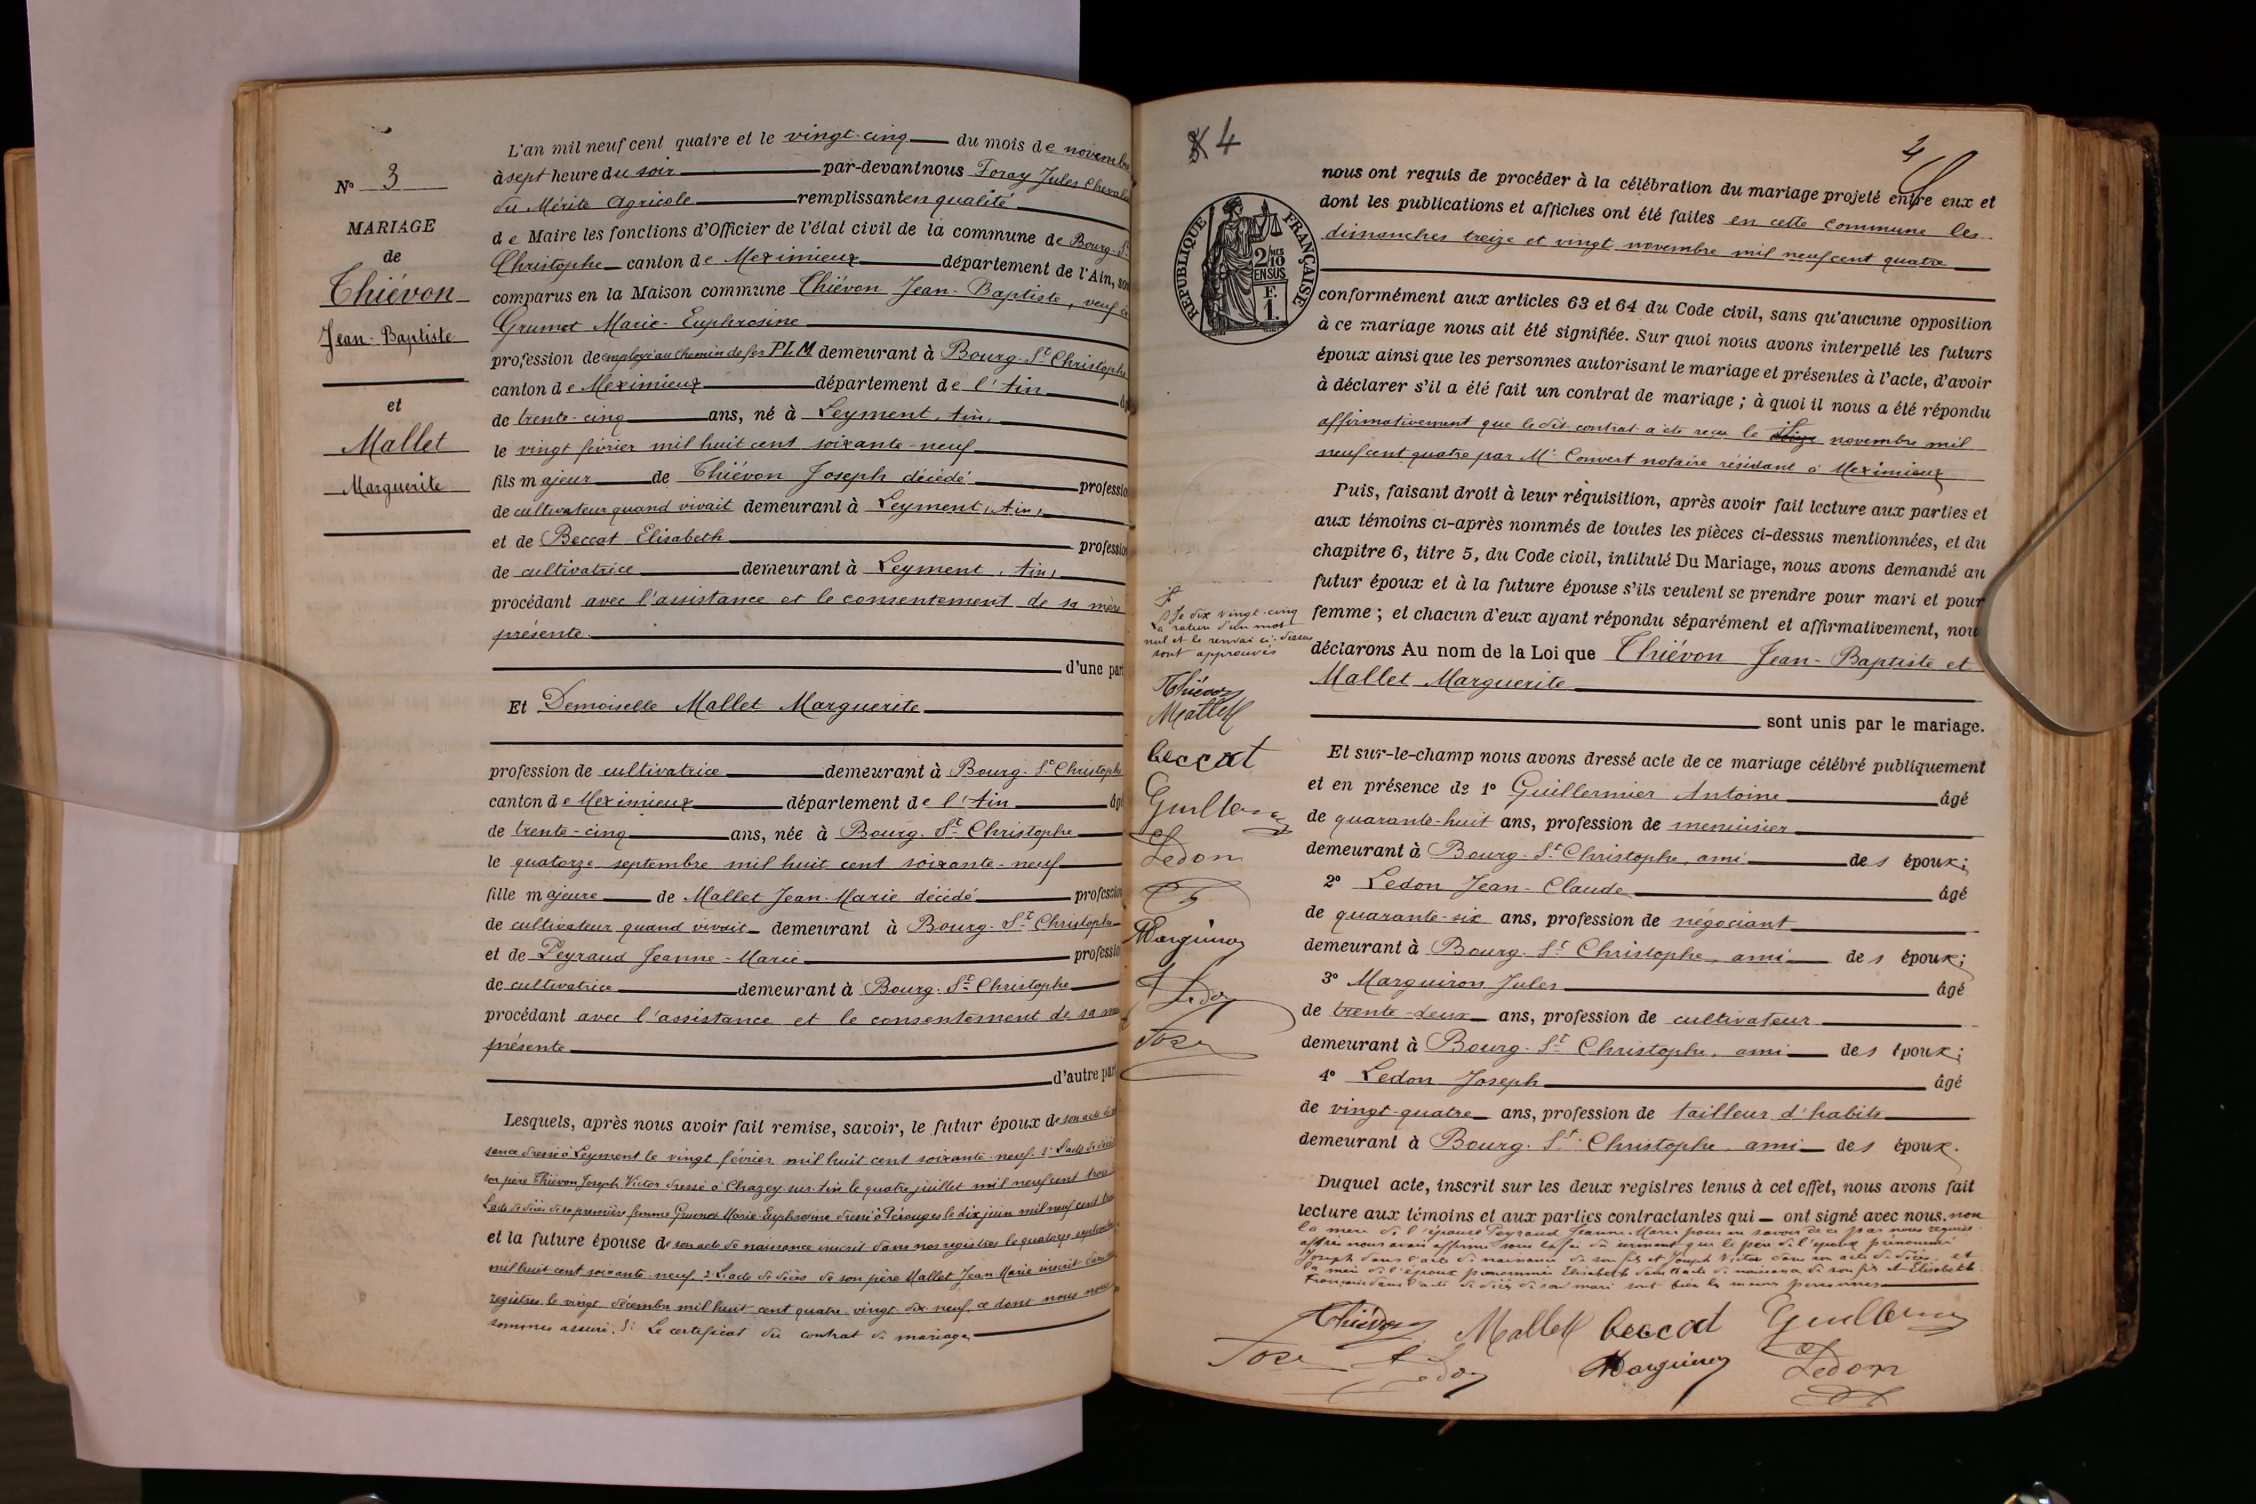 N° 3
MARIAGE
de
Thiévon
Jean-Baptiste
et
Mallet
Marguerite
L'an mil neuf cent quatre et le vingt-cinq du mois de novembre
à sept heure du soir par-devant nous Foray Jules Chevalier
du Mérite Agricole remplissant en qualité
de Maire les fonctions d'Officier de l'état civil de la commune de Bourg-St
Christophe canton de Meximieux département de l'Ain, son
comparus en la Maison commune Thiévon Jean-Baptiste, veuf de
Grumet Marie-Euphrosine
profession de employé au chemin de fer PLM demeurant à Bourg-St Christophe
canton de Meximieux département de l'Ain âgé
de trente-cinq ans, né à Leyment, Ain,
le vingt février mil huit cent soixante-neuf
fils majeur de Thiévon Joseph décédé profession
de cultivateur quand vivait demeurant à Leyment, Ain,
et de Beccat Elisabeth profession
de cultivatrice demeurant à Leyment, Ain,
procédant avec l'assistance et le consentement de sa mère
présente
d'une part
Et Demoiselle Mallet Marguerite
profession de cultivatrice demeurant à Bourg-St Christophe
canton de Meximieux département de l'Ain âgé
de trente-cinq ans, née à Bourg-St Christophe
le quatorze septembre mil huit cent soixante-neuf
fille majeure de Mallet Jean-Marie décédé profession
de cultivateur quand vivait demeurant à Bourg-St Christophe
et de Peyraud Jeanne-Marie profession
de cultivatrice demeurant à Bourg-St Christophe
procédant avec l'assistance et le consentement de sa mère
présente
d'autre part
Lesquels, après nous avoir fait remise, savoir, le futur époux de son acte de nais
sance dressé à Leyment le vingt février mil huit cent soixante-neuf 2° L'acte de décès de
son père Thiévon Joseph Victor dressé à Chazey-sur-Ain le quatre juillet mil neuf cent trois
L'acte de décès de sa première femme Grumet Marie-Euphrosine dressé à Pérouges le dix juin mil neuf cent trois
et la future épouse de son acte de naissance inscrit dans nos registres le quatorze septembre
mil huit cent soixante-neuf. 2° L'acte de décès de son père Mallet Jean Marie inscrit dans nos
registres le vingt décembre mil huit cent quatre-vingt-dix-neuf, ce dont nous nous
sommes assuré. 3° Le certificat du contrat de mariage
4
4
RÉPUBLIQUE FRANÇAISE
2/10 MES
EN SUS
F.
1.
nous ont requis de procéder à la célébration du mariage projeté entre eux et
dont les publications et affiches ont été faites en cette commune les
dimanches treize et vingt novembre mil neuf cent quatre
conformément aux articles 63 et 64 du Code civil, sans qu'aucune opposition
à ce mariage nous ait été signifiée. Sur quoi nous avons interpellé les futurs
époux ainsi que les personnes autorisant le mariage et présentes à l'acte, d'avoir
à déclarer s'il a été fait un contrat de mariage ; à quoi il nous a été répondu
affirmativement que le dit contrat a été reçu le novembre mil
neuf cent quatre par Me Convert notaire résidant à Meximieux
Puis, faisant droit à leur réquisition, après avoir fait lecture aux parties et
aux témoins ci-après nommés de toutes les pièces ci-dessus mentionnées, et du
chapitre 6, titre 5, du Code civil, intitulé Du Mariage, nous avons demandé au
futur époux et à la future épouse s'ils veulent se prendre pour mari et pour
femme ; et chacun d'eux ayant répondu séparément et affirmativement, nou
déclarons Au nom de la Loi que Thiévon Jean-Baptiste et
Mallet Marguerite
sont unis par le mariage.
Le dix vingt-cinq
La rature d'un mot
nul et le renvoi ci-dessus
sont approuvés
Thiévon
Mallet
beccat
Guillerm
Ledon
Marguiron
Ledon
Foray
Et sur-le-champ nous avons dressé acte de ce mariage célébré publiquement
et en présence de 1° Guillermier Antoine âgé
de quarante-huit ans, profession de menuisier
demeurant à Bourg-St Christophe, ami des époux;
2° Ledon Jean-Claude âgé
de quarante-six ans, profession de négociant
demeurant à Bourg-St Christophe, ami des époux;
3° Marguiron Jules âgé
de trente-deux ans, profession de cultivateur
demeurant à Bourg-St Christophe, ami des époux;
4° Ledon Joseph âgé
de vingt-quatre ans, profession de tailleur d'habits
demeurant à Bourg-St Christophe ami des époux.
Duquel acte, inscrit sur les deux registres tenus à cet effet, nous avons fait
lecture aux témoins et aux parties contractantes qui ont signé avec nous. non
la mère de l'épouse Peyraud Jeanne-Marie pour ne savoir de ce par nous requise
après nous avoir affirmé sous la foi du serment que le père de l'époux prénommé
Joseph dans l'acte de naissance de son fils et Joseph Victor dans son acte de décès et
la mère de l'époux prénommée Elisabeth dans l'acte de naissance de son fils et Elisabeth
Françoise dans l'acte de décès de son mari sont bien les mêmes personnes
Thiévon Mallet beccat Guillerm
Foray Ledon Marguiron Ledon